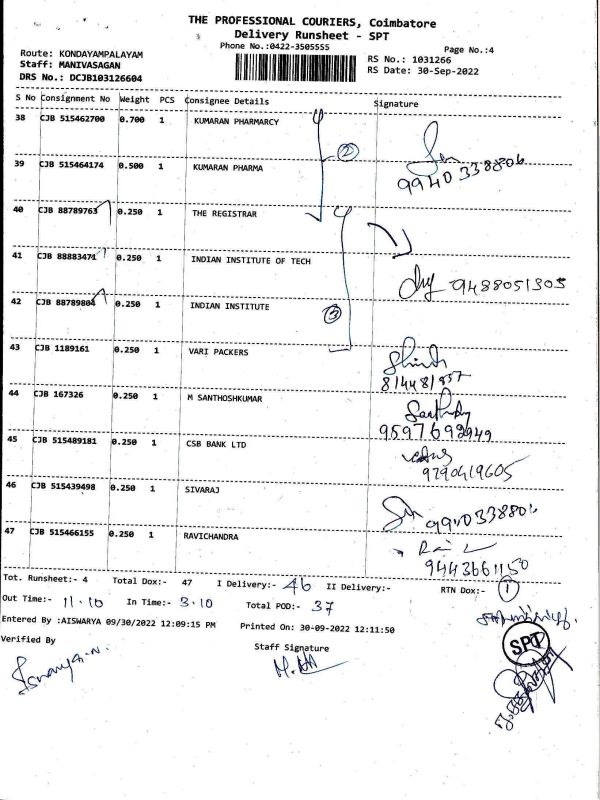 THE PROFESSIONAL COURIERS, Coimbatore
Delivery Runsheet - SPT
Phone No.:0422-3505555
Page No.:4
Route: KONDAYAMPALAYAM
Staff: MANIVASAGAN
DRS No.: DCJB103126604
RS No.: 1031266
RS Date: 30-Sep-2022
S No Consignment No Weight PCS Consignee Details Signature
38 CJB 515462700 0.700 1 KUMARAN PHARMARCY
②
39 CJB 515464174 0.500 1 KUMARAN PHARMA 9940338806
40 CJB 88789763 0.250 1 THE REGISTRAR
41 CJB 88883471 0.250 1 INDIAN INSTITUTE OF TECH
9488051305
42 CJB 88789804 0.250 1 INDIAN INSTITUTE
③
43 CJB 1189161 0.250 1 VARI PACKERS
44 CJB 167326 0.250 1 M SANTHOSHKUMAR
45 CJB 515489181 0.250 1 CSB BANK LTD
9790419605
46 CJB 515439498 0.250 1 SIVARAJ
47 CJB 515466155 0.250 1 RAVICHANDRA
9443661150
Tot. Runsheet:- 4 Total Dox:- 47 I Delivery:- 46 II Delivery:- RTN Dox:- ①
Out Time:- 11.10 In Time:- 3.10 Total POD:- 37
Entered By :AISWARYA 09/30/2022 12:09:15 PM Printed On: 30-09-2022 12:11:50
Verified By Staff Signature
SPT